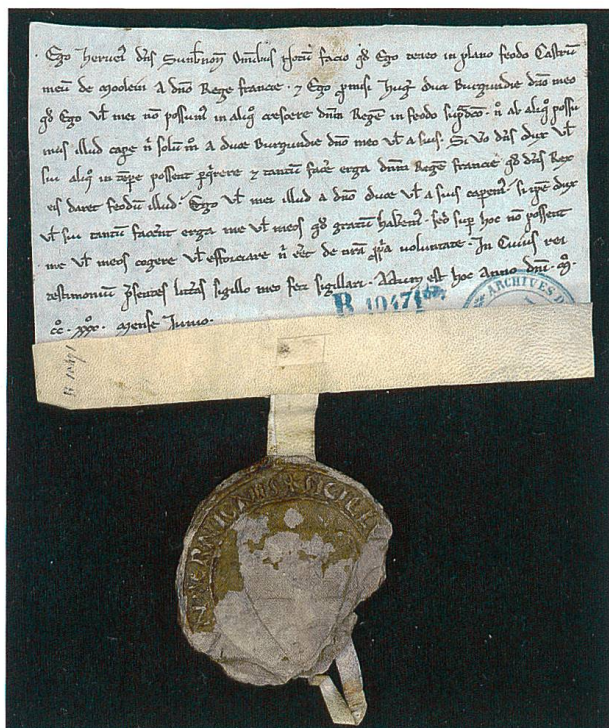 Ego herveꝰ dñs Sumbñon Omibus Notũ facio qd Ego teneo in plano feodo Castrũ
meũ de Moolein A dño Rege francie . ⁊ Ego pmisi hug duci Burgundie dño meo
qd Ego ul mei nõ possumꝰ in aliq crescere dñm Regẽ in feodo supdco . ñ ab aliq possu
mus illud cape ñ solũ a duce Burgundie dño meo ul a suis . Si uo dñs dux ul
sui aliq in tẽpe possent q̃rere ⁊ tantũ facẽ erga dñm Regẽ francie qd dñs Rex
eis daret feodũ illud . Ego ul mei illud a dño duce ul a suis capemꝰ . si ipe dux
ul sui tantũ facẽnt erga me ul meos qd gratũ habemꝰ . sed sup hoc nõ possent
me ul meos cogere ul efforciare ñ eẽt de nr̃a ppa voluntate . In Cuius rei
testimoniũ p̃sentes litt̃as sigillo meo feci sigillari . Actum est hoc Anno dñi . mͦ .
ccͦ . xxxͦ . mense Junio .
B 10471
ARCHIVES D
SIGILL